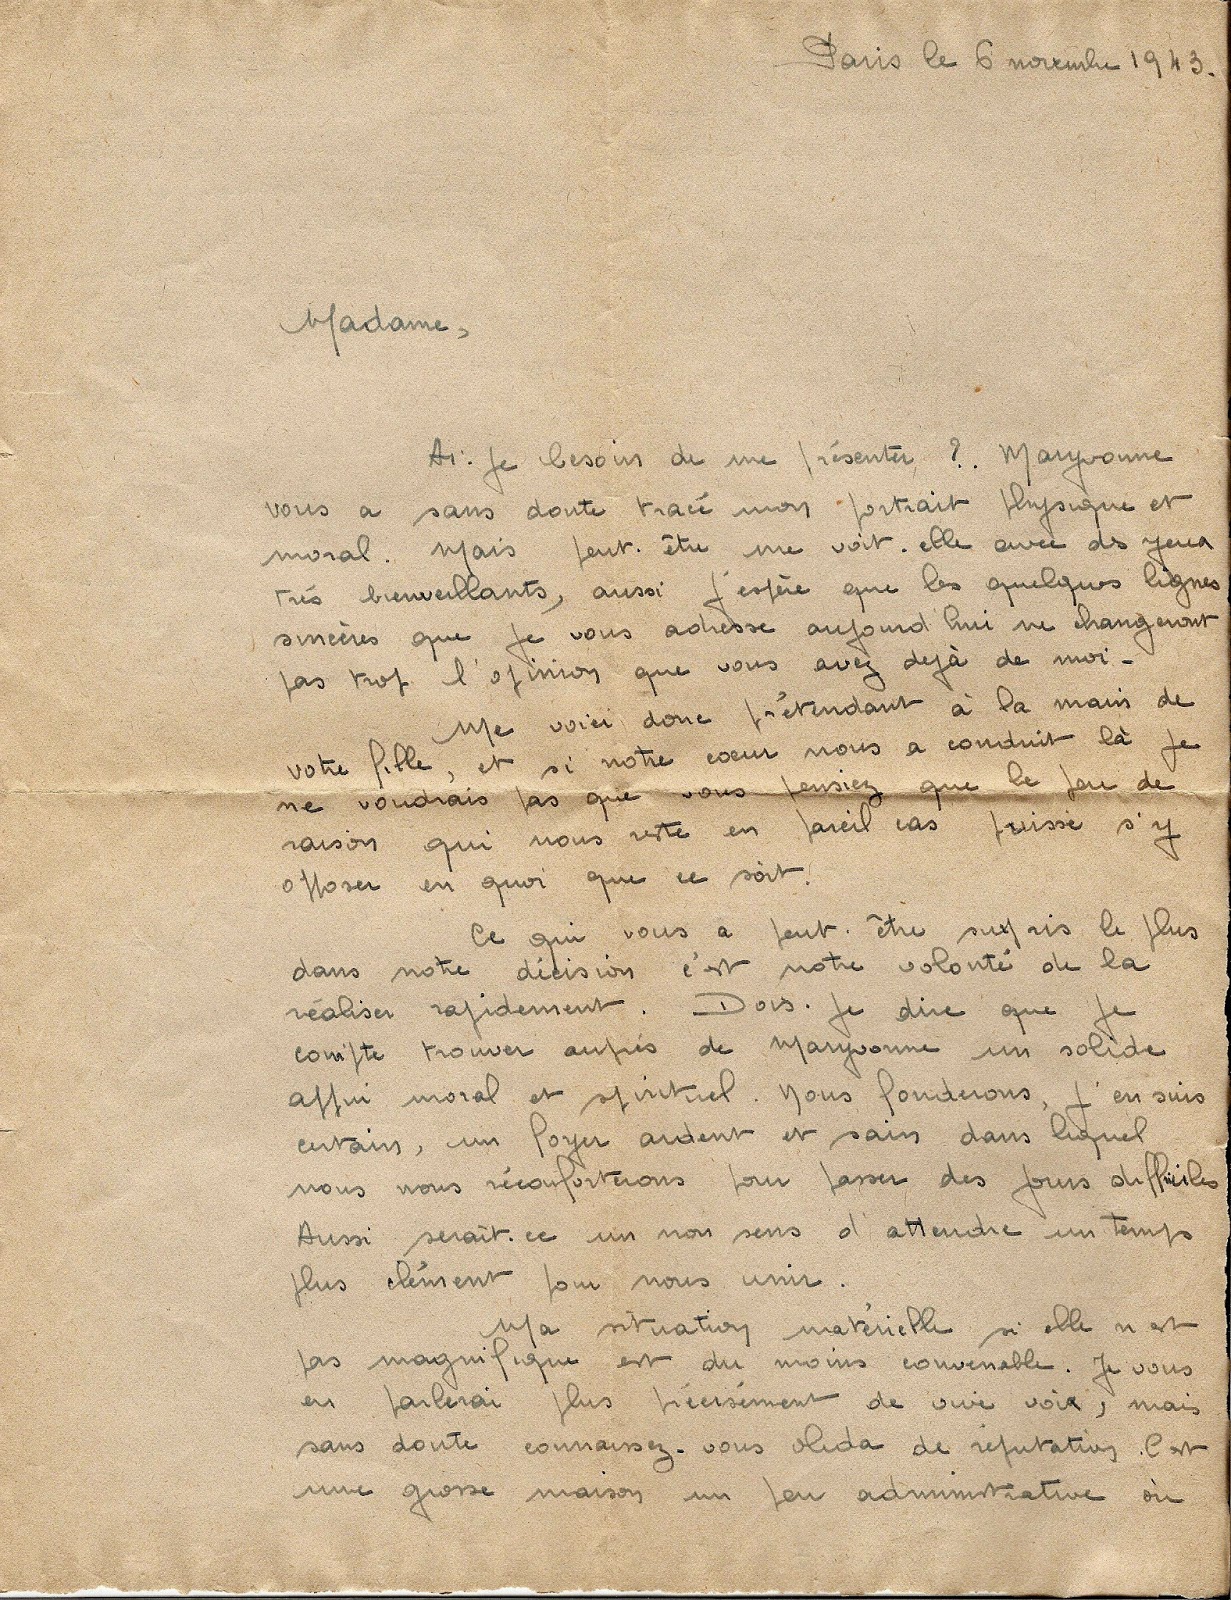 Paris le 6 novembre 1943.
Madame,
Ai-je besoin de me présenter ?. Maryvonne
vous a sans doute tracé mon portrait physique et
moral. Mais peut-être me voit-elle avec des yeux
très bienveillants, aussi j'espère que les quelques lignes
sincères que je vous adresse aujourd'hui ne changeront
pas trop l'opinion que vous avez dejà de moi-
Me voici donc prétendant à la main de
votre fille, et si notre coeur nous a conduit là je
ne voudrais pas que vous pensiez que le peu de
raison qui nous reste en pareil cas puisse s'y
opposer en quoi que ce soit.
Ce qui vous a peut-être surpris le plus
dans notre décision c'est notre volonté de la
réaliser rapidement. Dois-je dire que je
compte trouver auprès de Maryvonne un solide
appui moral et spirituel. Nous fonderons, j'en suis
certain, un foyer ardent et sain dans lequel
nous nous réconforterons pour passer des jours difficiles
Aussi serait-ce un non sens d'attendre un temps
plus clément pour nous unir.
Ma situation matérielle si elle n'est
pas magnifique est du moins convenable. Je vous
en parlerai plus précisément de vive voix, mais
sans doute connaissez-vous de réputation. C'est
une grosse maison un peu administrative où